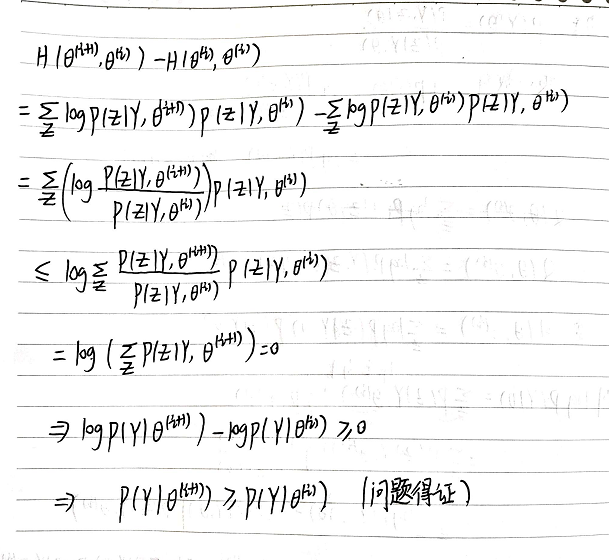 H(θ^(i+1), θ^(i)) - H(θ^(i), θ^(i))
= Σ_Z log P(Z|Y, θ^(i+1)) P(Z|Y, θ^(i)) - Σ_Z log P(Z|Y, θ^(i)) P(Z|Y, θ^(i))
= Σ_Z (log P(Z|Y, θ^(i+1)) / P(Z|Y, θ^(i))) P(Z|Y, θ^(i))
≤ log Σ_Z P(Z|Y, θ^(i+1)) / P(Z|Y, θ^(i)) P(Z|Y, θ^(i))
= log (Σ_Z P(Z|Y, θ^(i+1))) = 0
⇒ log P(Y|θ^(i+1)) - log P(Y|θ^(i)) ≥ 0
⇒ P(Y|θ^(i+1)) ≥ P(Y|θ^(i)) (问题得证)